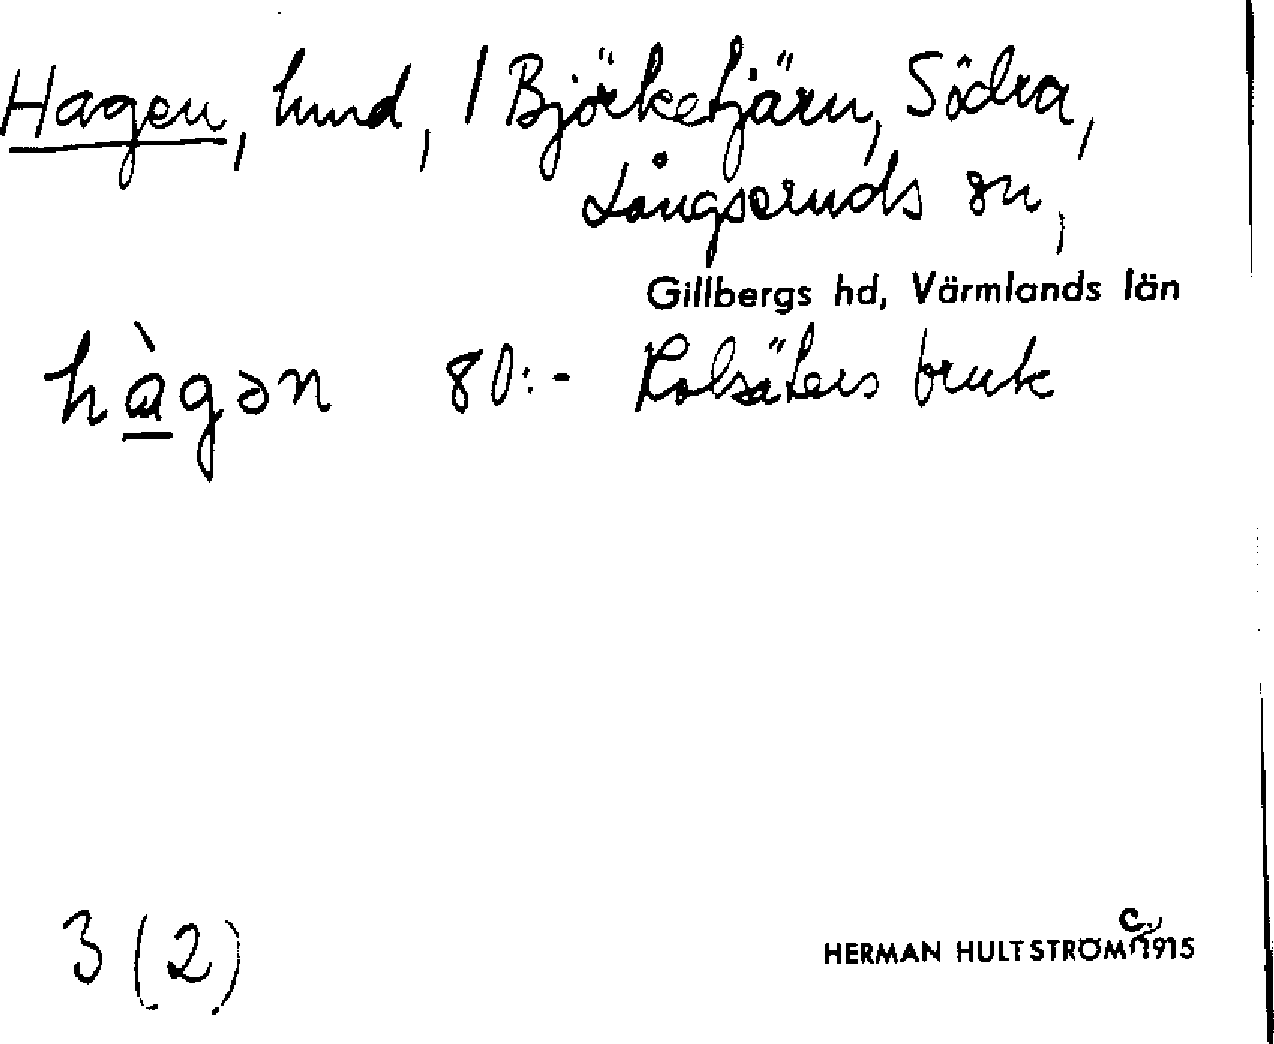 Hagen, hmd, / Björketjärn, Södra,
Långseruds sn,
Gillbergs hd, Värmlands län
hàgən 80:- Rolsäters bruk
3 (2)
HERMAN HULTSTRÖM C. 1915